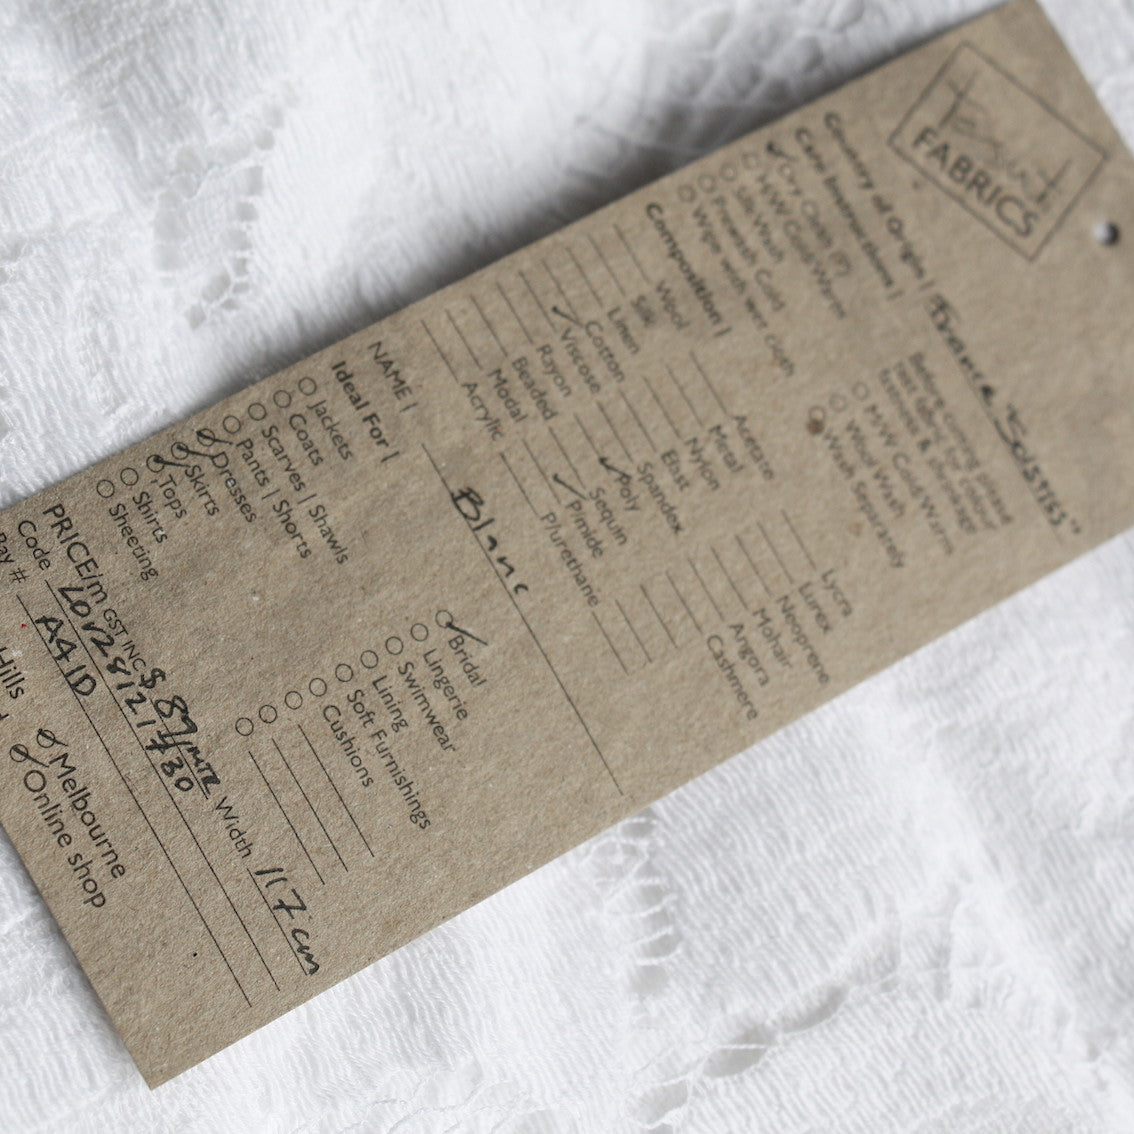 FABRICS
Country of Origin | France "SOLSTISS"
Care Instructions |
Dry Clean (P)
H/W Cold/Warm
Silk Wash
Prewash Cold
Wipe with wet cloth
Before cutting please
test fabric for colour
fastness & shrinkage
M/W Cold/Warm
Wool Wash
Wash Separately
Composition |
Wool
Silk
Linen
Cotton
Viscose
Rayon
Beaded
Modal
Acrylic
Acetate
Metal
Nylon
Elast
Spandex
Poly
Sequin
Pimide
P/urethane
Lycra
Lurex
Neoprene
Mohair
Angora
Cashmere
NAME | Blanc
Ideal For |
Jackets
Coats
Scarves | Shawls
Pants | Shorts
Dresses
Skirts
Tops
Shirts
Sheeting
Bridal
Lingerie
Swimwear
Lining
Soft Furnishings
Cushions
PRICE/m GST INC $ 89/MTR Width 117cm
Code
Bay # A41D
Hills
Melbourne
Online shop